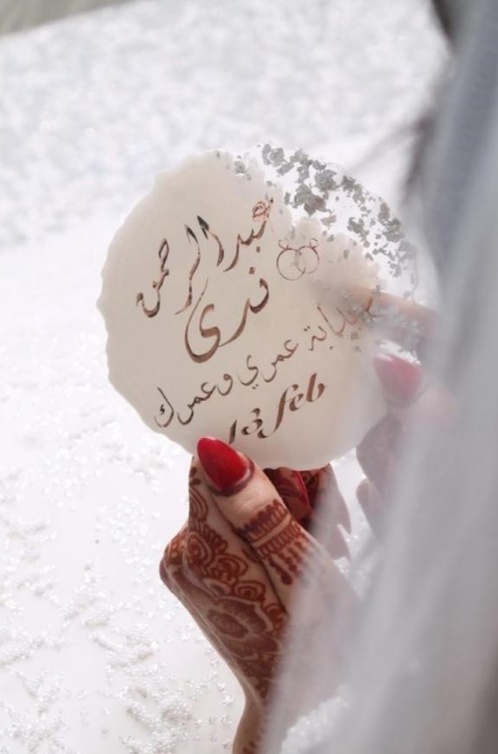 عبدالرحمن
ندى
بداية عمري وعمرك
13 feb